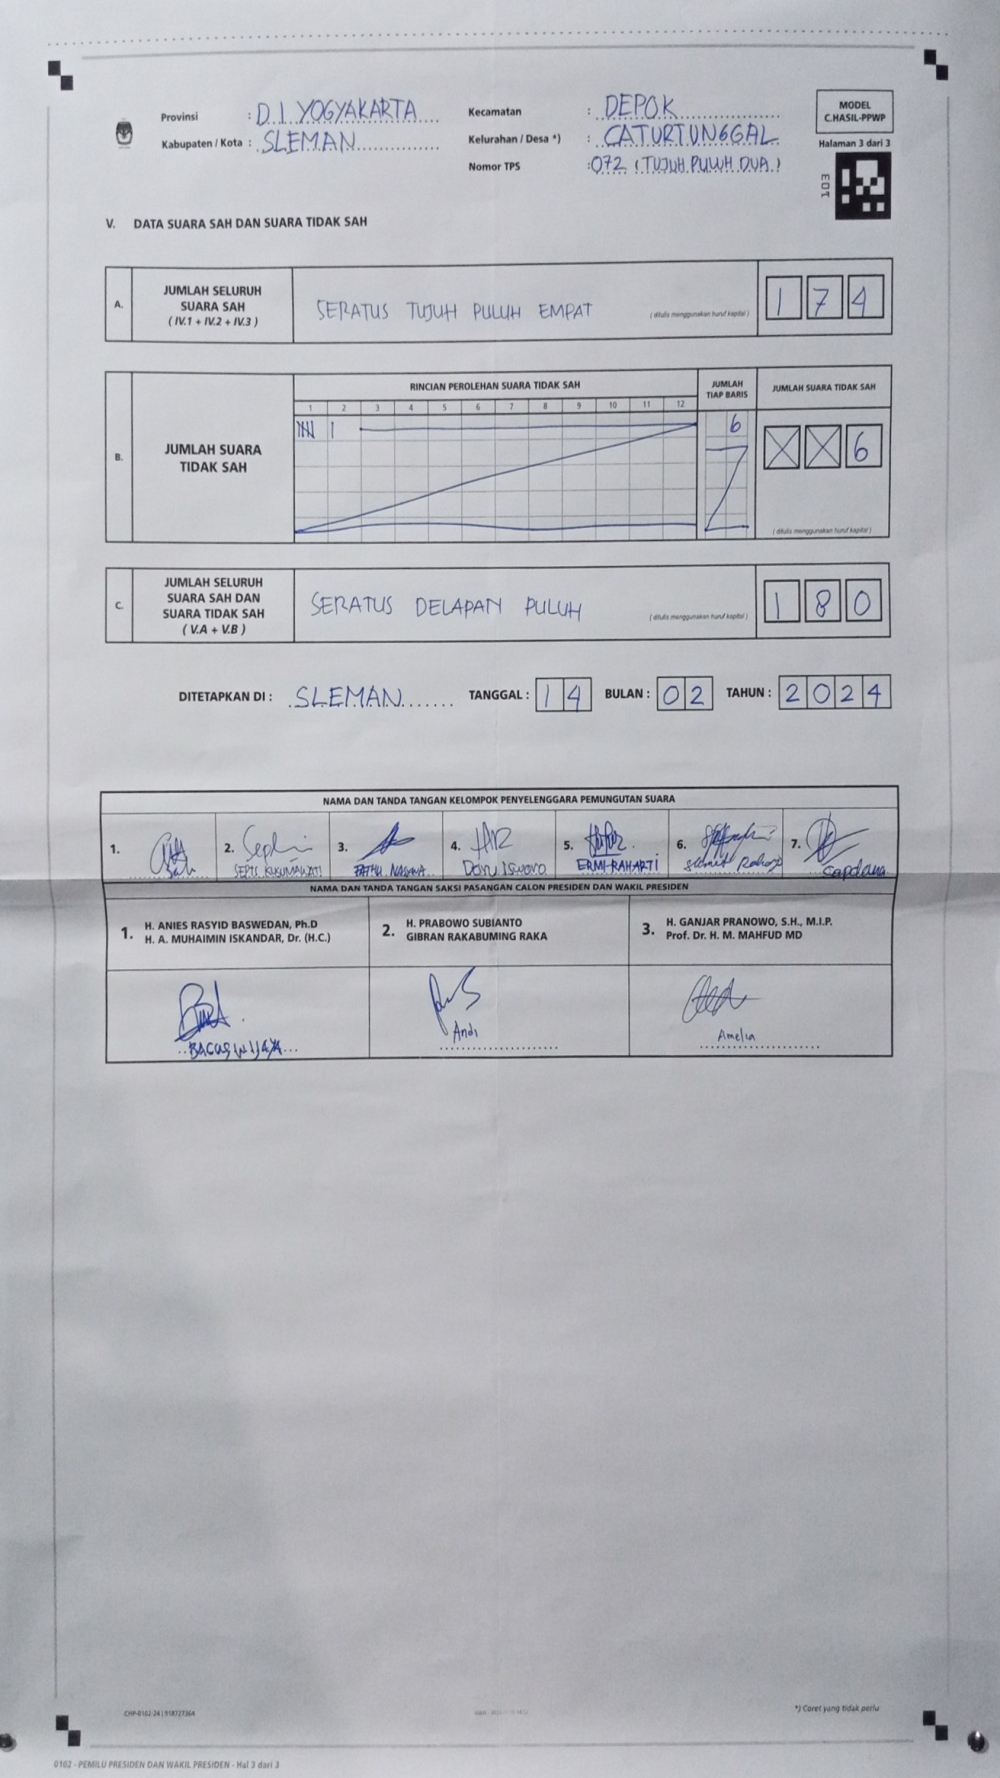 Provinsi : D.I. YOGYAKARTA
Kabupaten / Kota : SLEMAN
Kecamatan : DEPOK
Kelurahan / Desa *) : CATURTUNGGAL
Nomor TPS : 072 (TUJUH PULUH DUA)
MODEL
C.HASIL-PPWP
Halaman 3 dari 3
103
V. DATA SUARA SAH DAN SUARA TIDAK SAH
A. JUMLAH SELURUH
SUARA SAH
( IV.1 + IV.2 + IV.3 )
SERATUS TUJUH PULUH EMPAT
( ditulis menggunakan huruf kapital )
1 7 4
B. JUMLAH SUARA
TIDAK SAH
RINCIAN PEROLEHAN SUARA TIDAK SAH
1 2 3 4 5 6 7 8 9 10 11 12
JUMLAH
TIAP BARIS
6
JUMLAH SUARA TIDAK SAH
X X 6
( ditulis menggunakan huruf kapital )
C. JUMLAH SELURUH
SUARA SAH DAN
SUARA TIDAK SAH
( V.A + V.B )
SERATUS DELAPAN PULUH
( ditulis menggunakan huruf kapital )
1 8 0
DITETAPKAN DI : SLEMAN TANGGAL : 14 BULAN : 02 TAHUN : 2024
NAMA DAN TANDA TANGAN KELOMPOK PENYELENGGARA PEMUNGUTAN SUARA
1. 2. 3. 4. 5. 6. 7.
SEPTI KUSUMAWATI
ERMI RAHARTI
NAMA DAN TANDA TANGAN SAKSI PASANGAN CALON PRESIDEN DAN WAKIL PRESIDEN
1. H. ANIES RASYID BASWEDAN, Ph.D
H. A. MUHAIMIN ISKANDAR, Dr. (H.C.)
2. H. PRABOWO SUBIANTO
GIBRAN RAKABUMING RAKA
3. H. GANJAR PRANOWO, S.H., M.I.P.
Prof. Dr. H. M. MAHFUD MD
BAGUS WIJAYA
Andi
Amelia
CHP-0162-24 | 918727364
*) Coret yang tidak perlu
0162 - PEMILU PRESIDEN DAN WAKIL PRESIDEN - Hal 3 dari 3